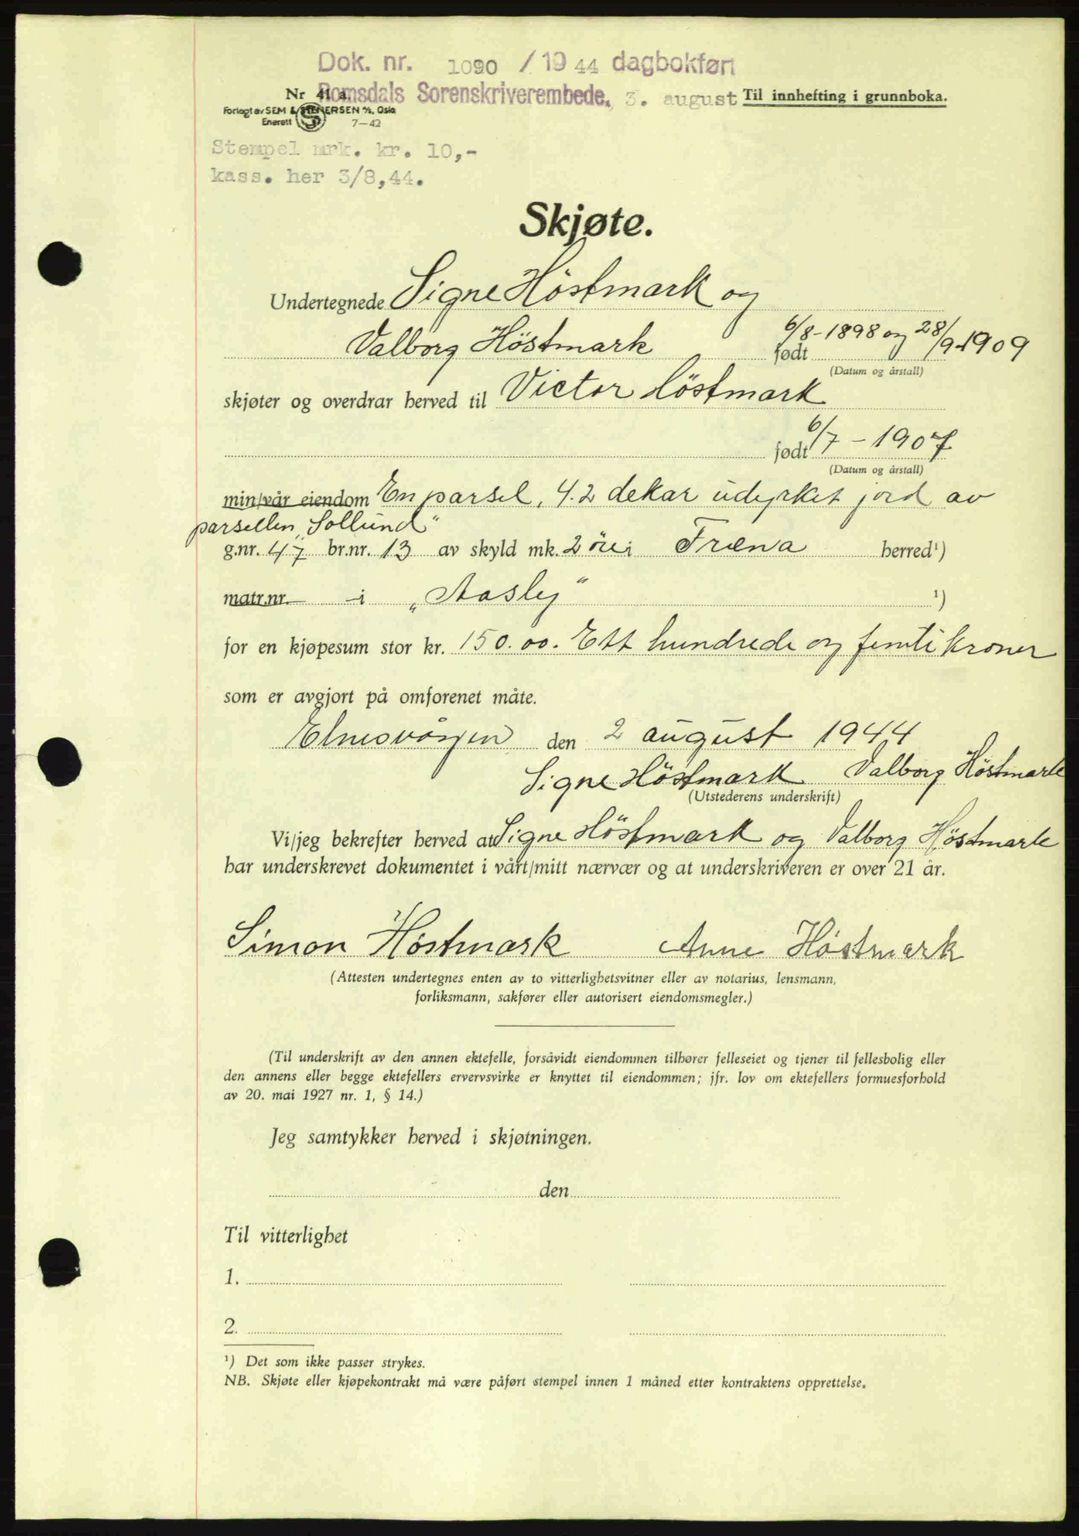 Dok. nr. 1090 / 19 44 dagbokført
Nr 41 a. Romsdals Sorenskriverembede, 3. august Til innhefting i grunnboka.
Forlagt av SEM & STENERSEN A/S, Oslo
Enerett 7-42
Stempel mrk. kr. 10,-
kass. her 3/8,44.
Skjøte.
Undertegnede Signe Höstmark og
Valborg Höstmark født 6/8-1898 og 28/9-1909
(Datum og årstall)
skjøter og overdrar herved til Victor Höstmark
født 6/7-1907
(Datum og årstall)
min/vår eiendom En parsel, 4.2 dekar udyrket jord av
parsellen „Sollund"
g.nr. 47 br.nr. 13 av skyld mk. 2 öre i Fræna herred¹)
matr.nr. - i „Aasly" ¹)
for en kjøpesum stor kr. 150.00. Ett hundrede og femti kroner
som er avgjort på omforenet måte.
Elnesvågen den 2 august 1944
Signe Höstmark Valborg Höstmark
(Utstederens underskrift)
Vi/jeg bekrefter herved at Signe Höstmark og Valborg Höstmark
har underskrevet dokumentet i vårt/mitt nærvær og at underskriveren er over 21 år.
Simon Höstmark Anne Höstmark
(Attesten undertegnes enten av to vitterlighetsvitner eller av notarius, lensmann,
forliksmann, sakfører eller autorisert eiendomsmegler.)
(Til underskrift av den annen ektefelle, forsåvidt eiendommen tilhører felleseiet og tjener til fellesbolig eller
den annens eller begge ektefellers ervervsvirke er knyttet til eiendommen; jfr. lov om ektefellers formuesforhold
av 20. mai 1927 nr. 1, § 14.)
Jeg samtykker herved i skjøtningen.
den
Til vitterlighet
1.
2.
¹) Det som ikke passer strykes.
NB. Skjøte eller kjøpekontrakt må være påført stempel innen 1 måned etter kontraktens opprettelse.